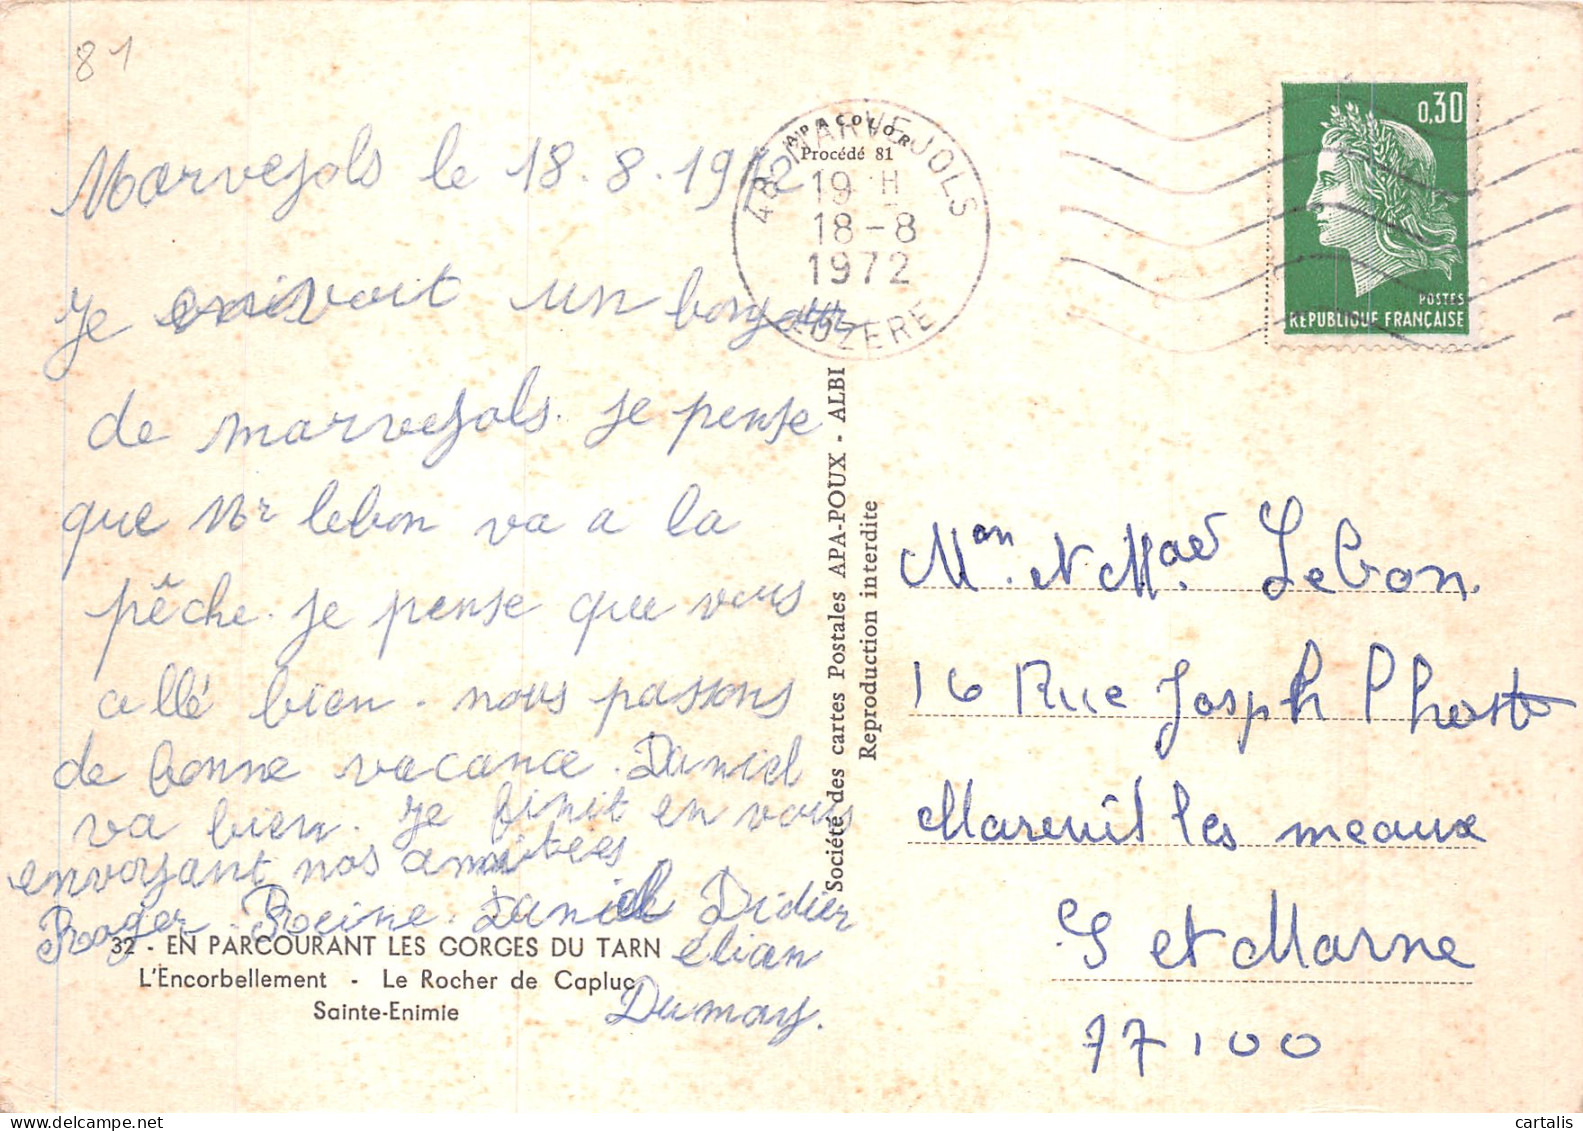 81
Marvejols le 18.8.1972
Je envoit un bonjour
de Marvejols. Je pense
que Mr lebon va a la
pêche. Je pense que vous
allé bien. nous passons
de bonne vacance. Daniel
va bien. Je finit en vous
envoyant nos amitees
Roger. Reine. Daniel Didier
élian
Dumay.
32 - EN PARCOURANT LES GORGES DU TARN
L'Encorbellement - Le Rocher de Capluc
Sainte-Enimie
APACOLOR
Procédé 81
48 MARVEJOLS
19 H
18-8
1972
LOZERE
Société des cartes Postales APA-POUX - ALBI
Reproduction interdite
0,30
POSTES
RÉPUBLIQUE FRANÇAISE
Lebon.
16 Rue Josph
Mareuil les meaux
S et Marne
77100
cartalis